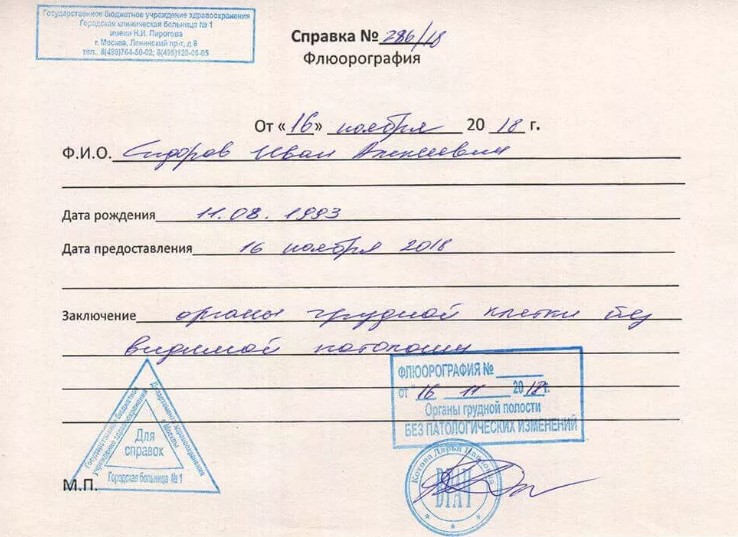 Государственное бюджетное учреждение здравоохранения
Городская клиническая больница № 1
имени Н.И. Пирогова
г. Москва, Ленинский пр-т, д.8
тел. 8(499)764-50-02; 8(495)
Справка № 286/18
Флюорография
От «16» ноября 2018 г.
Ф.И.О. Сидоров Иван Алексеевич
Дата рождения 11.08.1993
Дата предоставления 16 ноября 2018
Заключение органы грудной клетки без
видимой патологии
ФЛЮОРОГРАФИЯ №
от "16 11 2018г.
Органы грудной полости
БЕЗ ПАТОЛОГИЧЕСКИХ ИЗМЕНЕНИЙ
Государственное бюджетное учреждение здравоохранения
Департамент здравоохранения г. Москвы
Для
справок
Городская больница №1
М.П.
Дарья
ВРАЧ